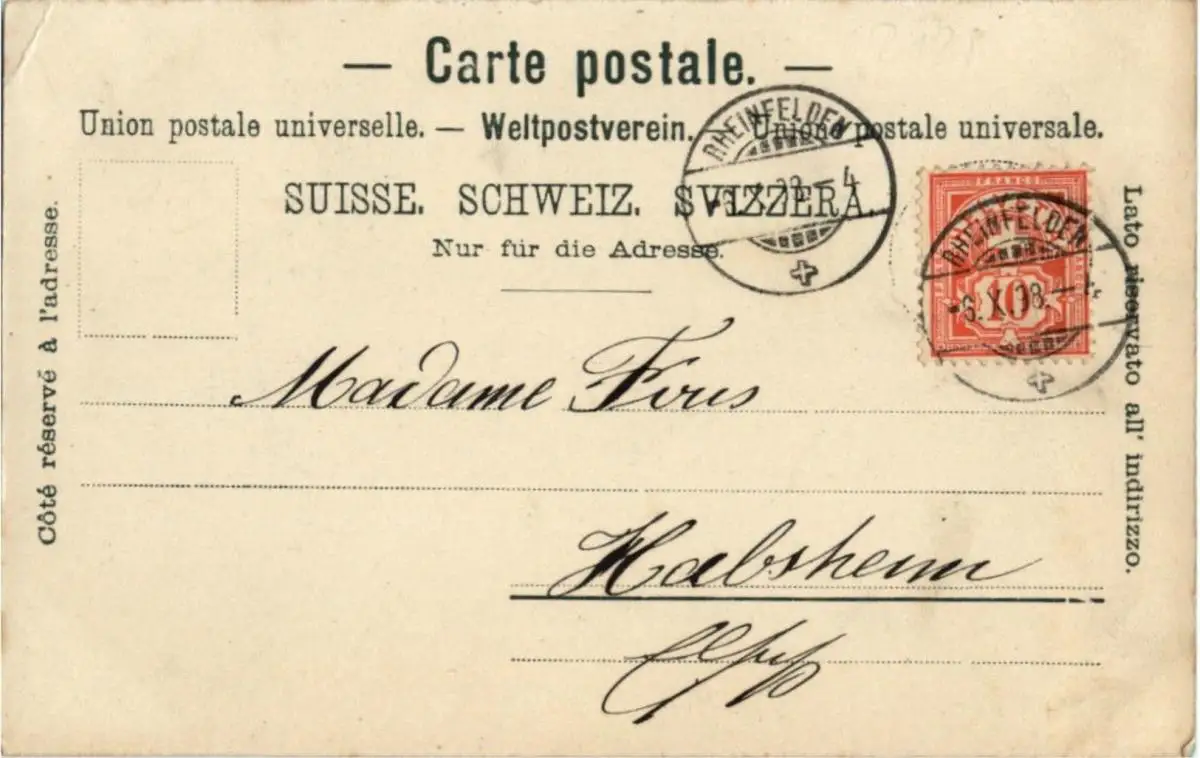 — Carte postale. —
Union postale universelle. — Weltpostverein. — Unione postale universale.
SUISSE. SCHWEIZ. SVIZZERA.
Nur für die Adresse.
Côté réservé à l'adresse.
Lato riservato all' indirizzo.
RHEINFELDEN
-6.X.98.–4
FRANCO
10
RHEINFELDEN
-6.X.98.–4
Madame
Habsheim